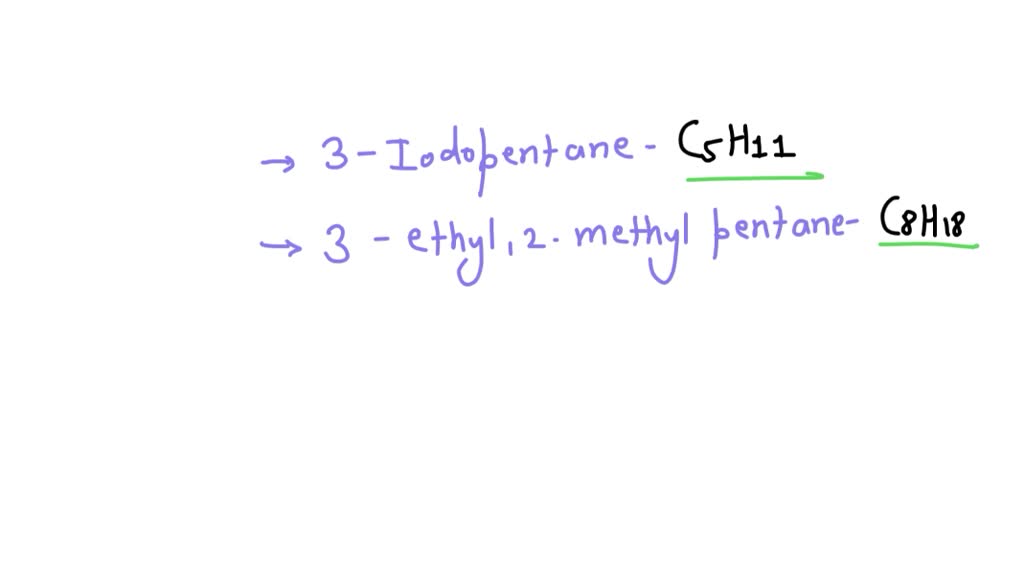 → 3-Iodopentane - C5H11
→ 3-ethyl,2. methyl pentane- C8H18